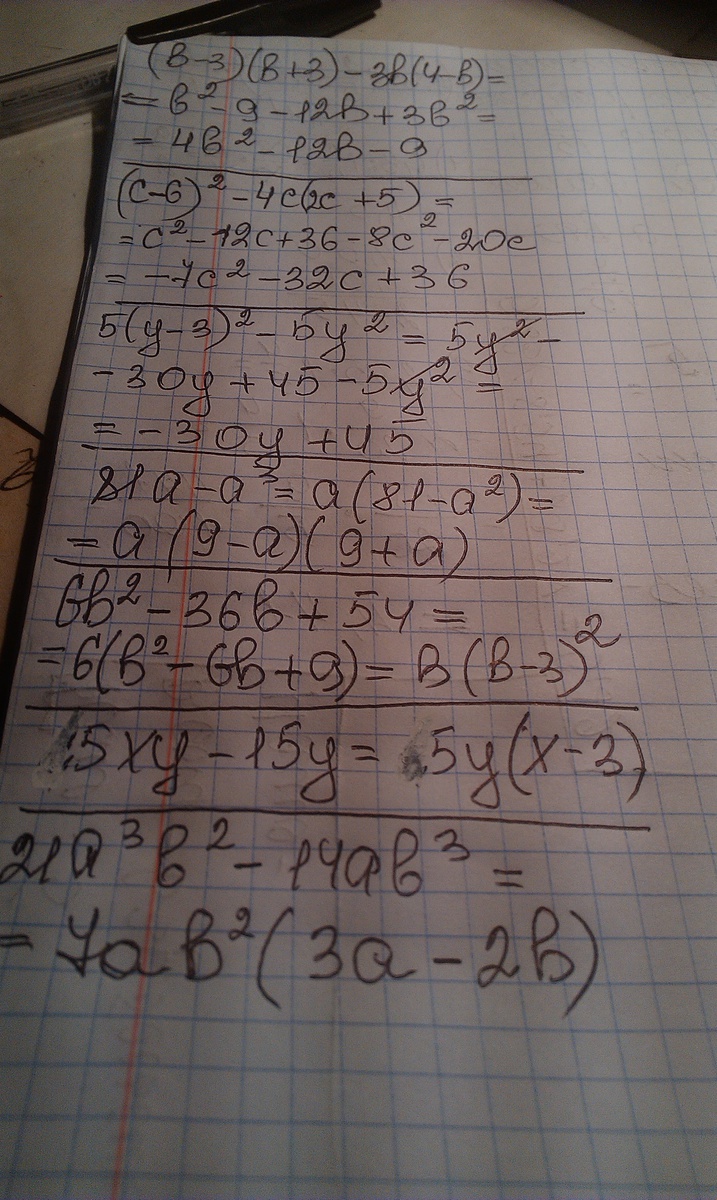 (в-3)(в+3)-3в(4-в)=
=в²-9-12в+3в²=
=4в²-12в-9
(c-6)²-4c(2c+5)=
=c²-12c+36-8c²-20c
=-7c²-32c+36
5(y-3)²-5y²=5y²-
-30y+45-5y²=
=-30y+45
81a-a³=a(81-a²)=
=a(9-a)(9+a)
6в²-36в+54=
=6(в²-6в+9)=в(в-3)²
5xy-15y=5y(x-3)
21a³в²-14aв³=
=7aв²(3a-2в)